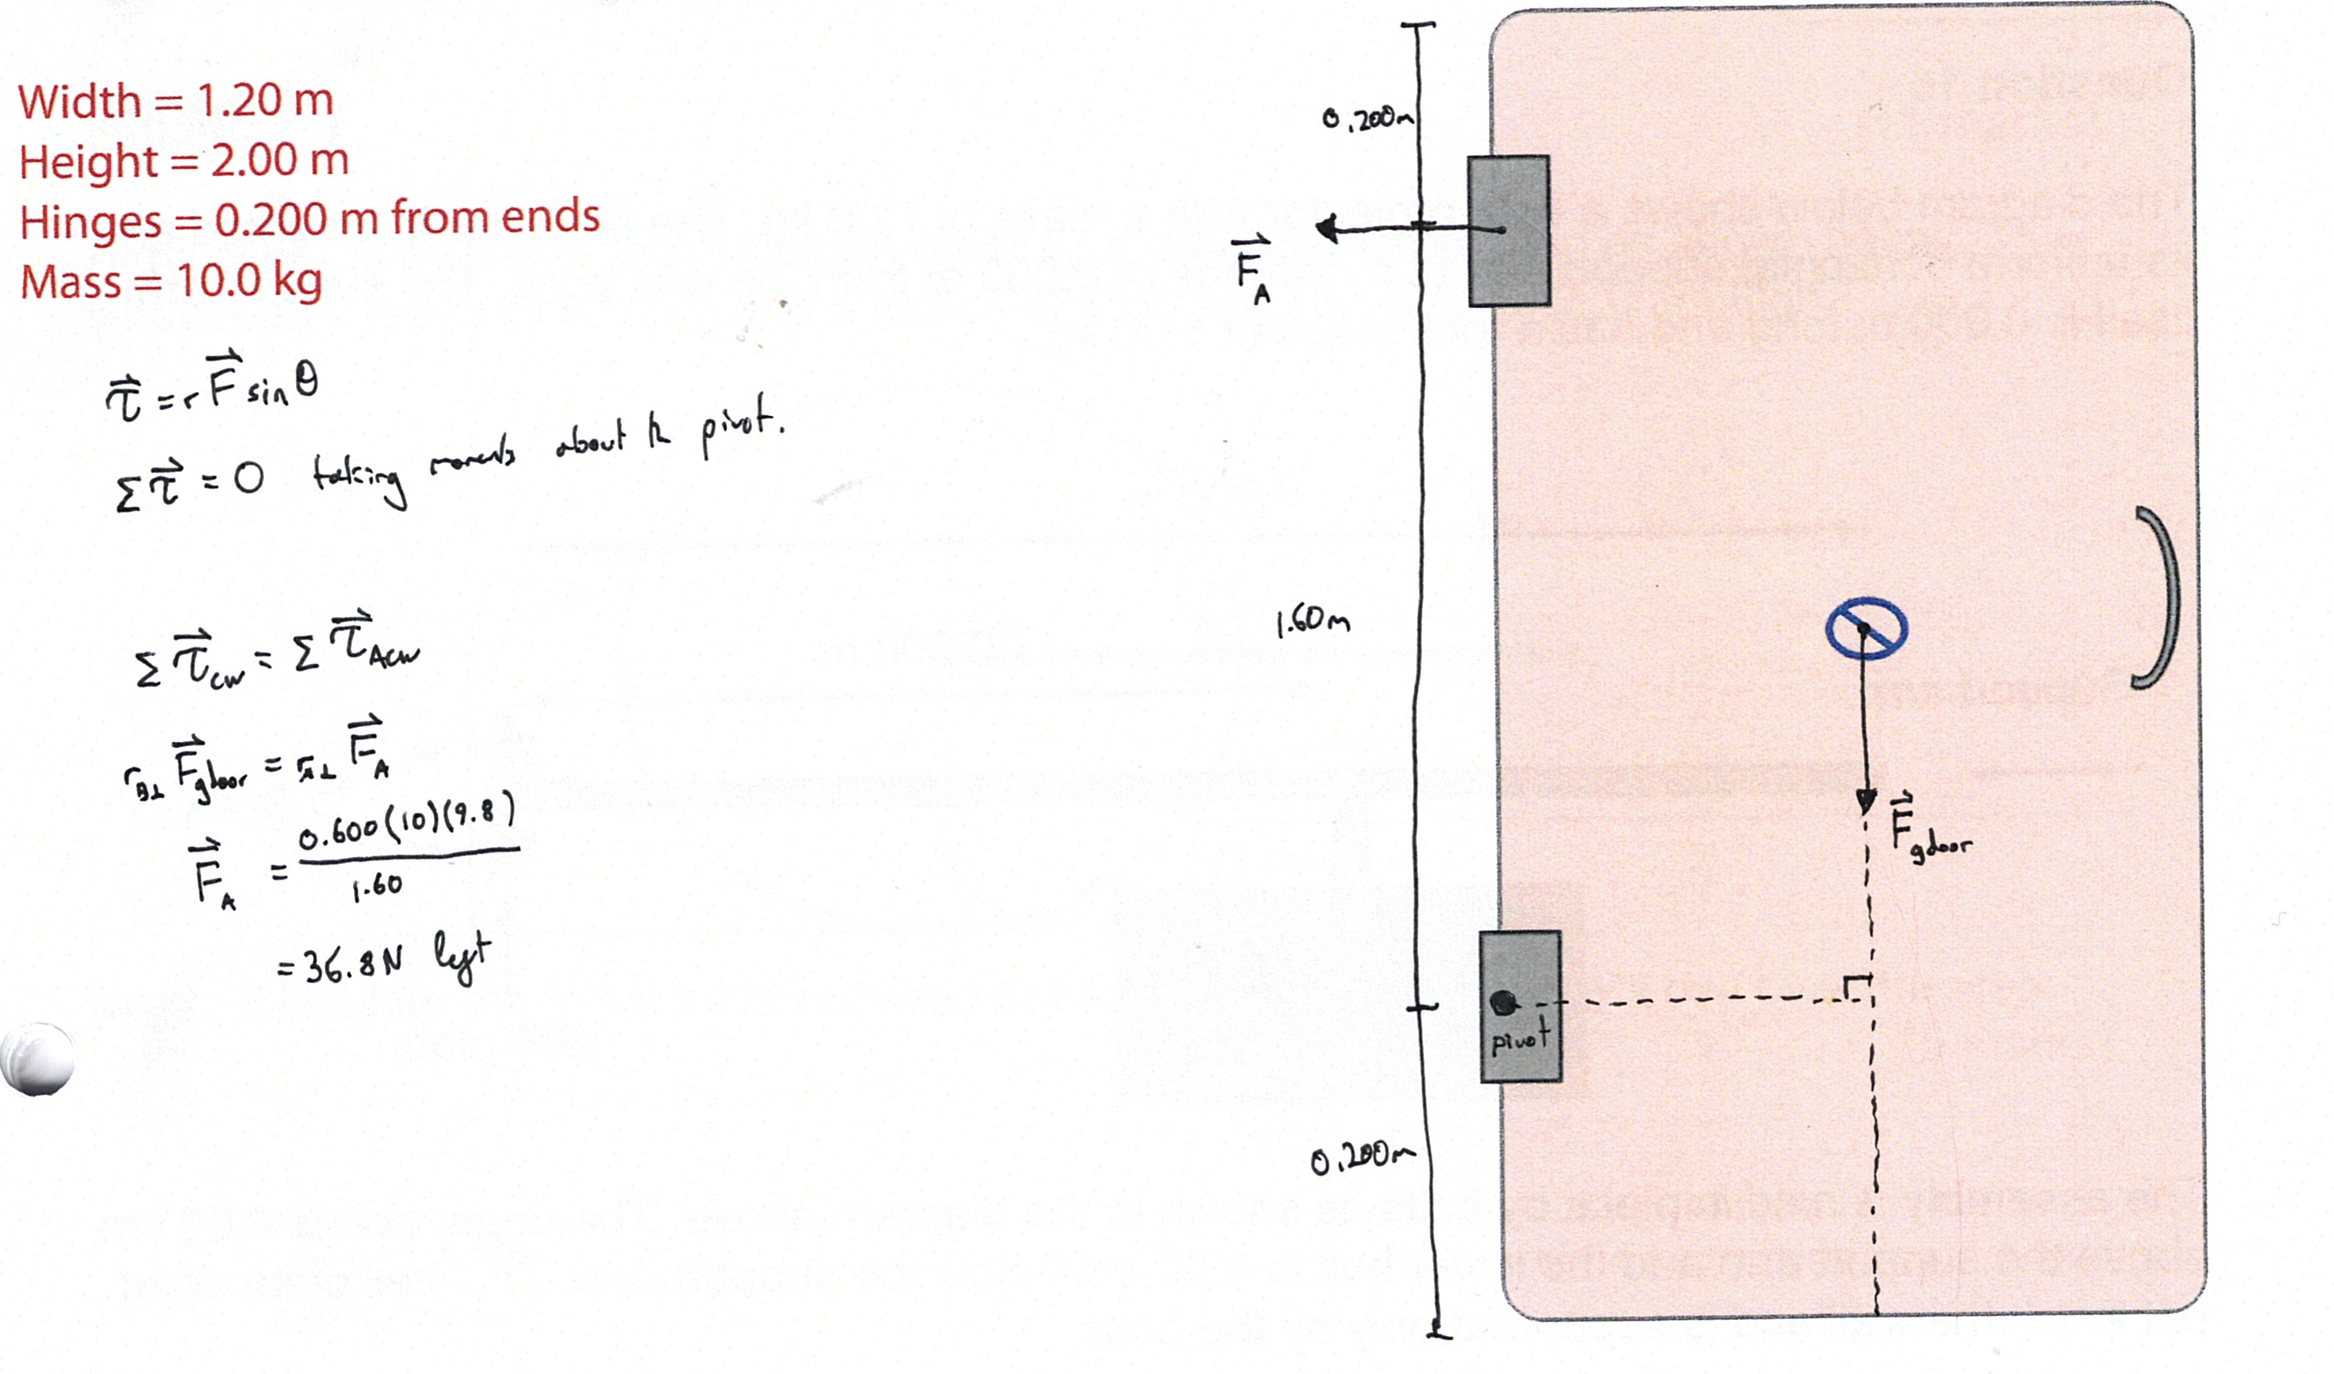 Width = 1.20 m
Height = 2.00 m
Hinges = 0.200 m from ends
Mass = 10.0 kg
τ⃗ = r F⃗ sin θ
Σ τ⃗ = 0 taking moments about the pivot.
Σ τ⃗_cw = Σ τ⃗_Acw
r_B⊥ F⃗_gdoor = r_A⊥ F⃗_A
F⃗_A = 0.600(10)(9.8) / 1.60
= 36.8N left
0.200m
F⃗_A
1.60m
F⃗_gdoor
pivot
0.200m